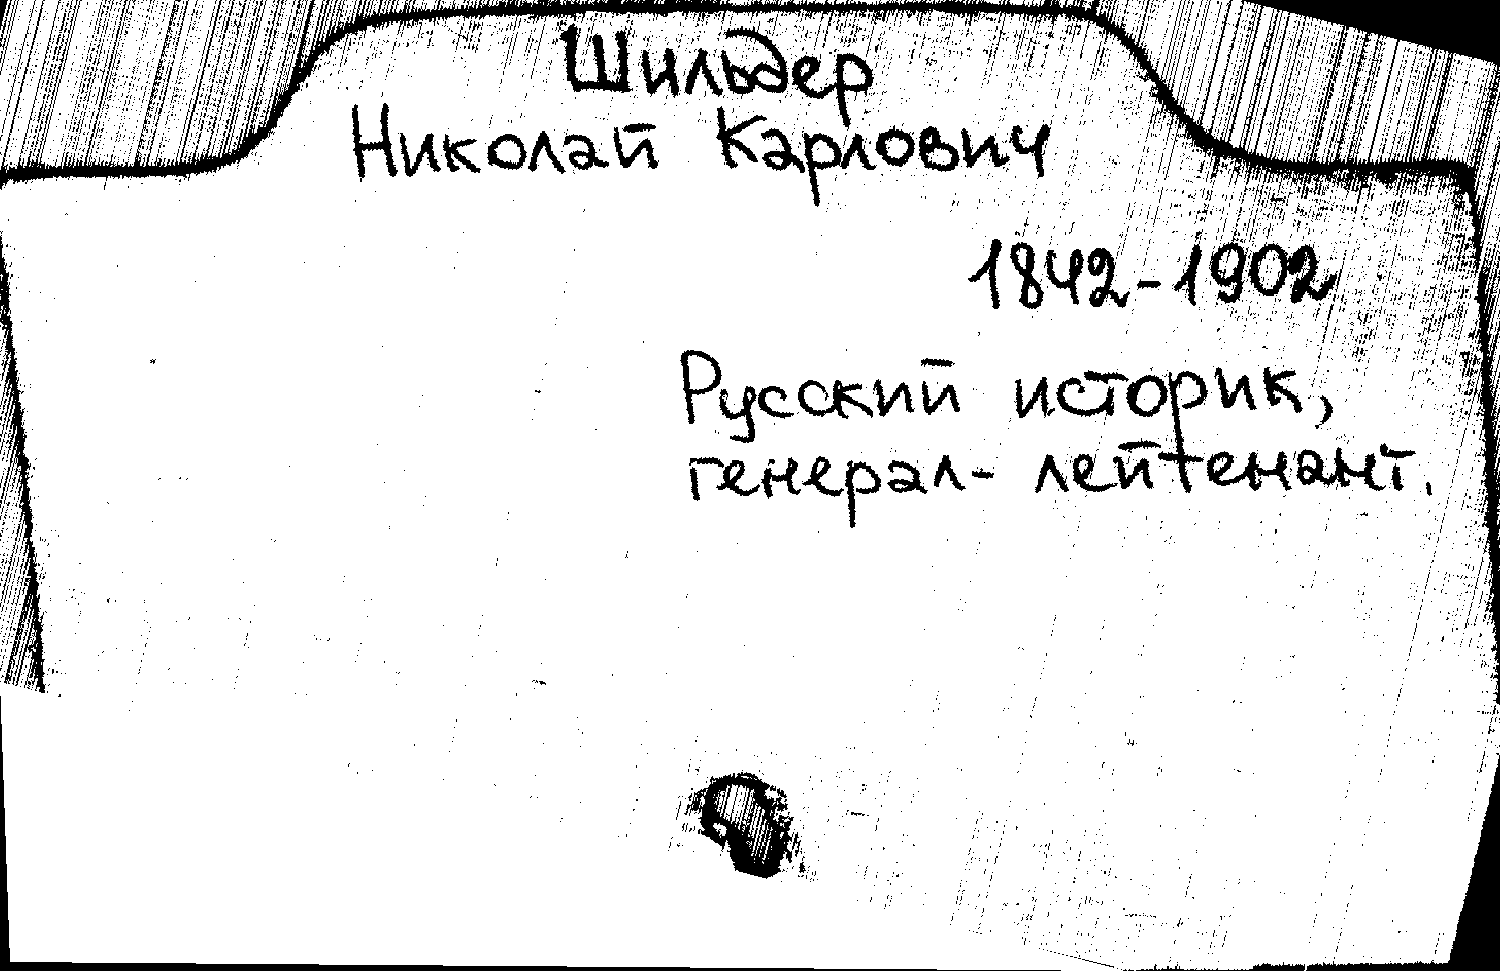 Шильдер
Николай Карлович
1842-1902
Русский историк,
генерал-лейтенант.